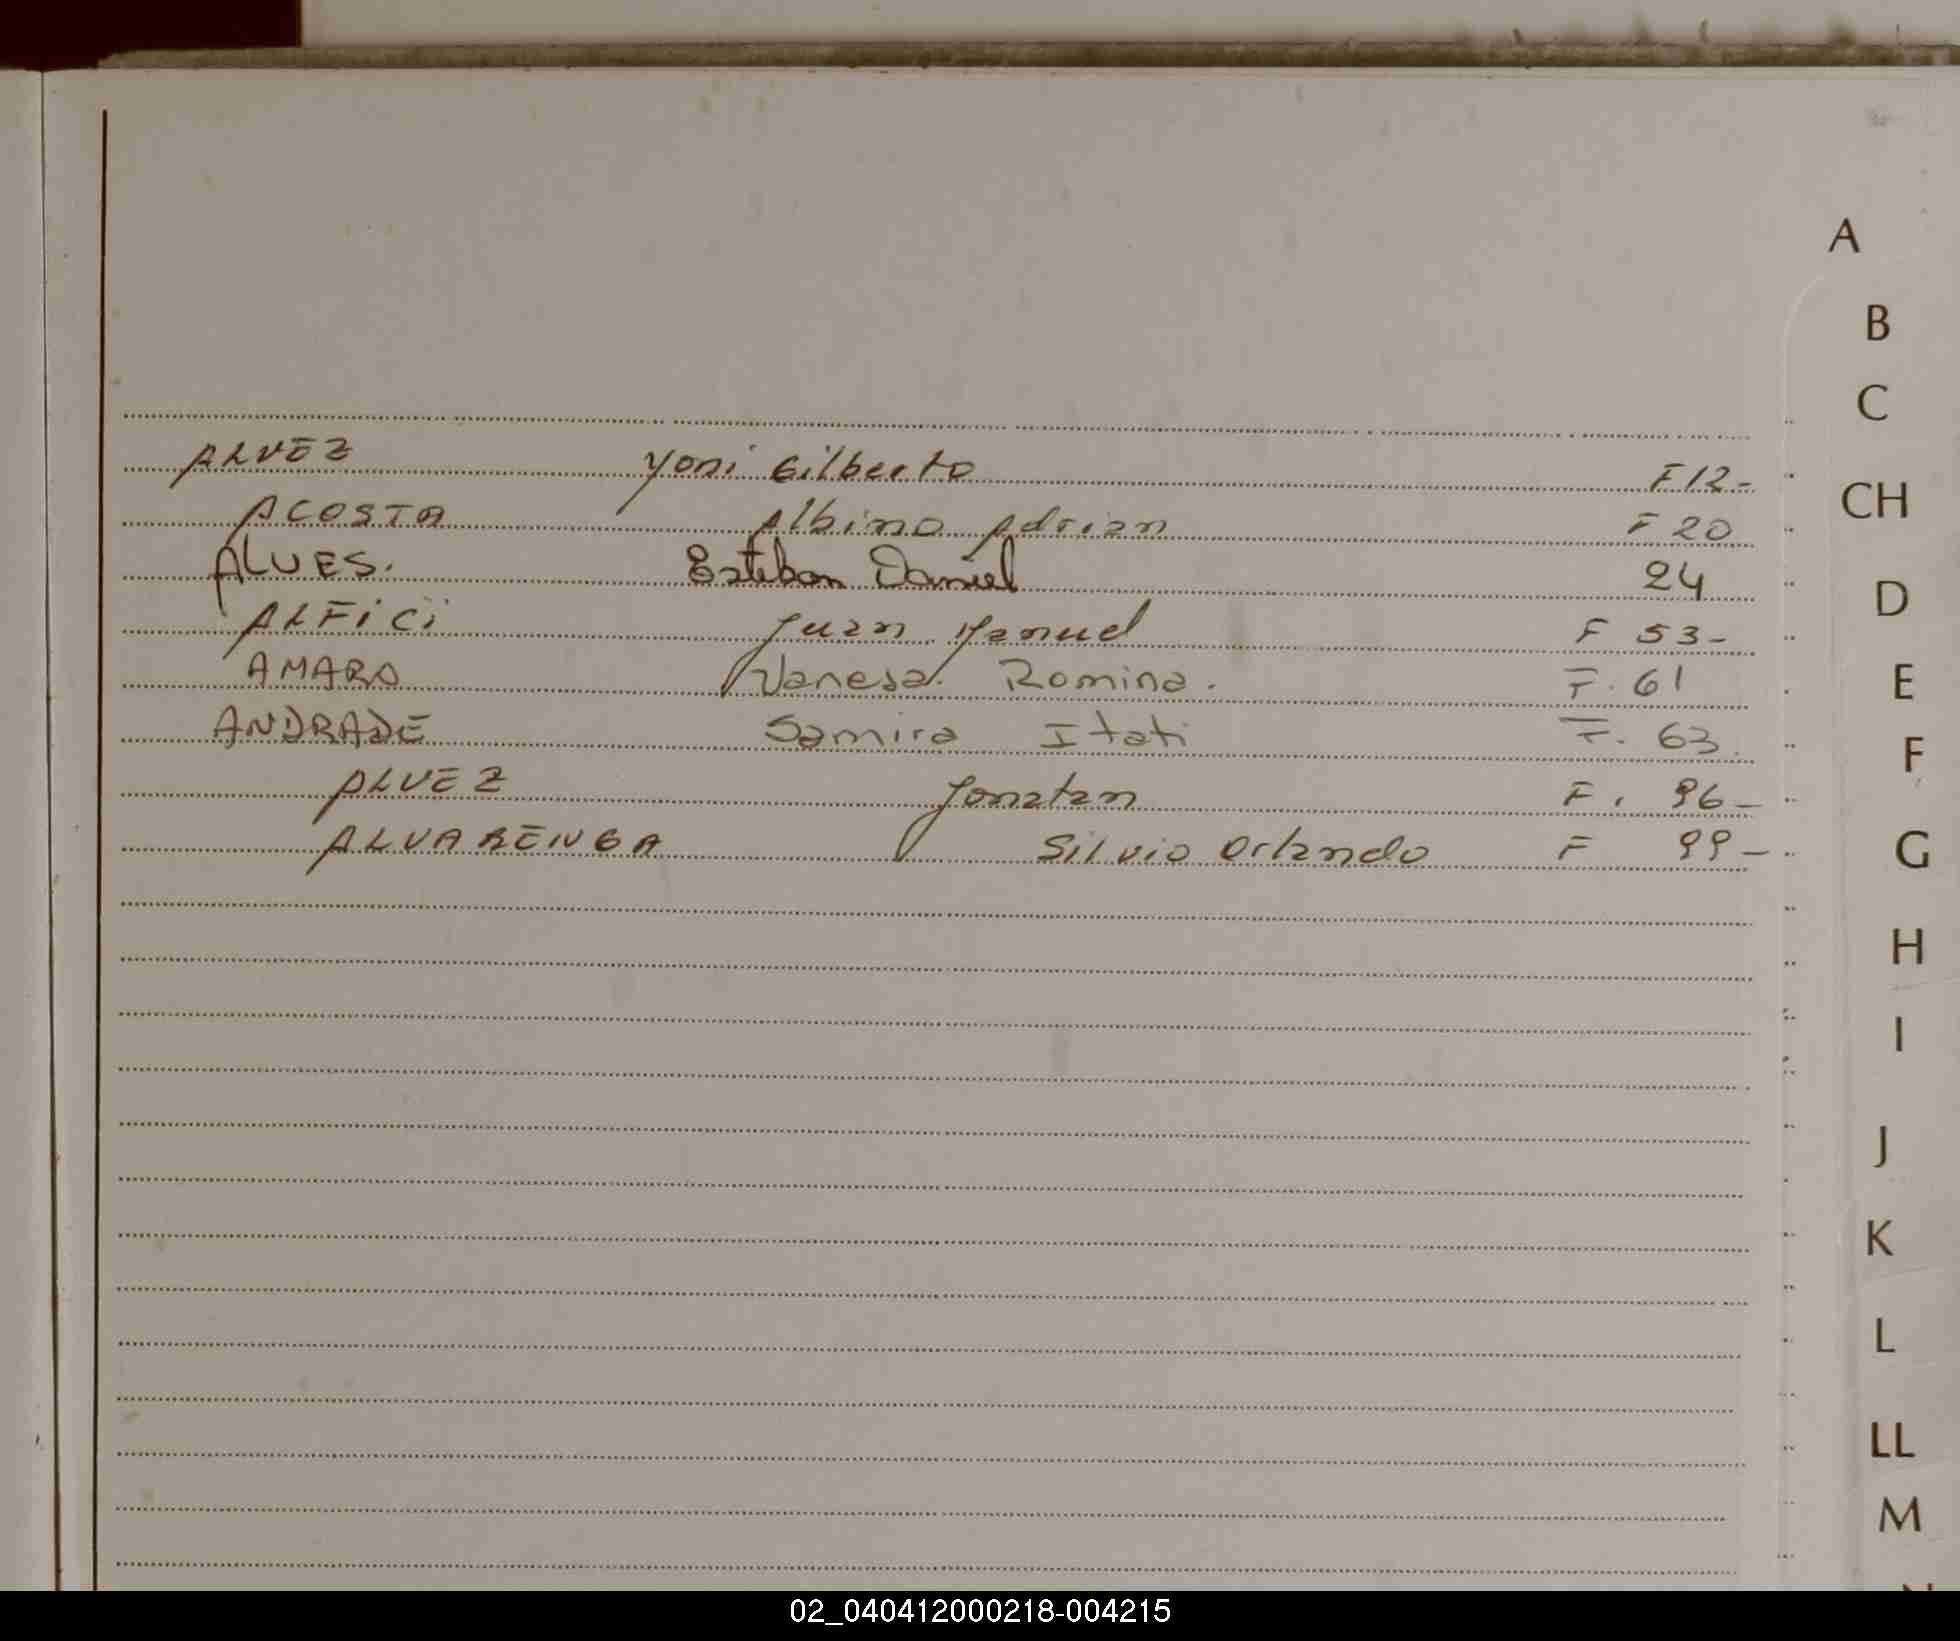 A
B
C
ALVEZ Yoni Gilberto F 12-
CH
ACOSTA Albino Adrian F 20
ALVES. Esteban Daniel 24
D
ALFICI Juan Manuel F 53-
AMARO Vanesa Romina. F. 61
E
ANDRADE Samira Itati F. 63.
F
ALVEZ Jonatan F. 96-
ALVARENGA Silvio Orlando F 99-
G
H
I
J
K
L
LL
M
02_040412000218-004215